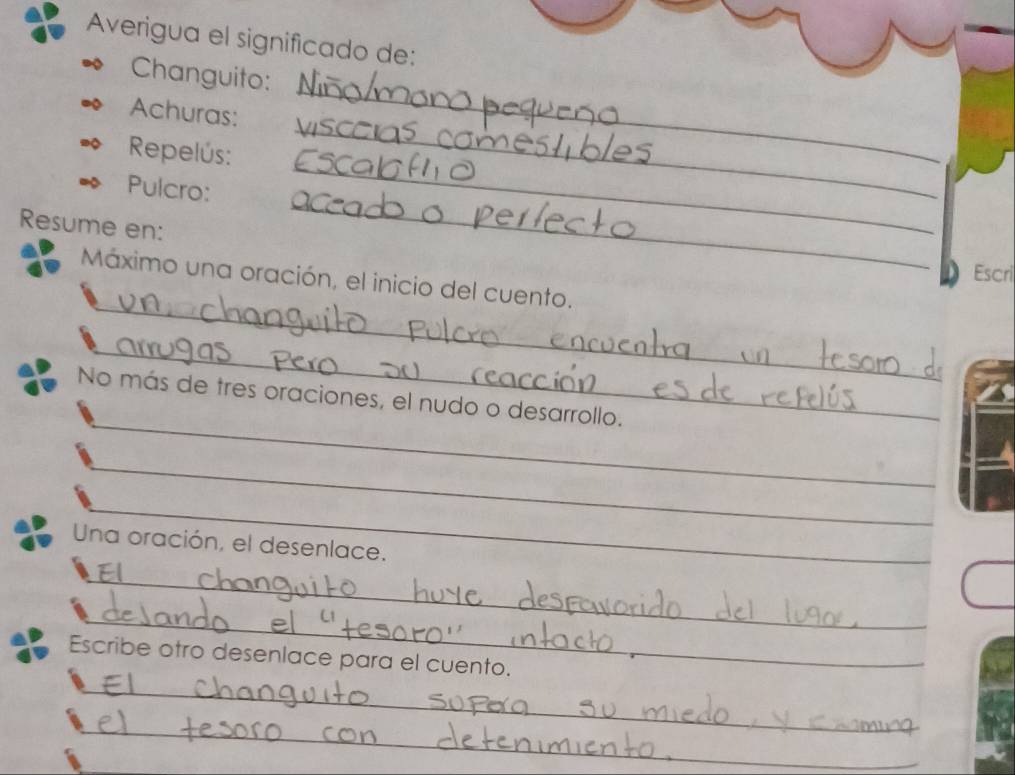 Averigua el significado de:
Changuito: Niño/mono pequeño
Achuras: visceras comestibles
Repelús: Escalofrio
Pulcro: aceado o perfecto
Resume en:
Máximo una oración, el inicio del cuento.
un changuito Pulcro encuentra un tesoro de
arrugas Pero su reacción es de repelús
No más de tres oraciones, el nudo o desarrollo.
Una oración, el desenlace.
El changuito huye despavorido del lugar,
dejando el "tesoro" intacto.
Escribe otro desenlace para el cuento.
El changuito supera su miedo, y
el tesoro con detenimiento.
Escri